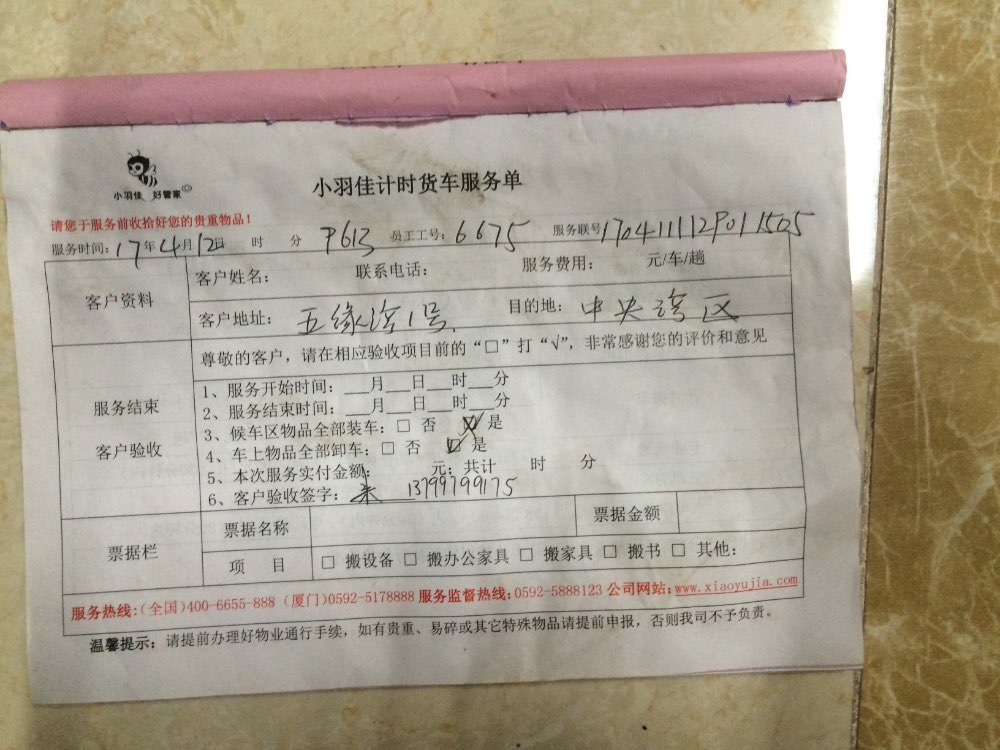 小羽佳 好管家
小羽佳计时货车服务单
请您于服务前收拾好您的贵重物品！
服务时间：17年4月12日 时 分 P613 员工工号：6675 服务联号170411112P011505
客户资料
客户姓名： 联系电话： 服务费用： 元/车/趟
客户地址：五缘湾1号. 目的地：中央湾区
服务结束
客户验收
尊敬的客户，请在相应验收项目前的“□”打“√”，非常感谢您的评价和意见
1、服务开始时间：___月___日___时___分
2、服务结束时间：___月___日___时___分
3、候车区物品全部装车：□ 否 ☑ 是
4、车上物品全部卸车：□ 否 ☑ 是
5、本次服务实付金额： 元；共计 时 分
6、客户验收签字： 13799799175
票据栏
票据名称 票据金额
项 目 □ 搬设备 □ 搬办公家具 □ 搬家具 □ 搬书 □ 其他：
服务热线：（全国）400-6655-888（厦门）0592-5178888 服务监督热线：0592-5888123 公司网站：www.xiaoyujia.com
温馨提示：请提前办理好物业通行手续，如有贵重、易碎或其它特殊物品请提前申报，否则我司不予负责。